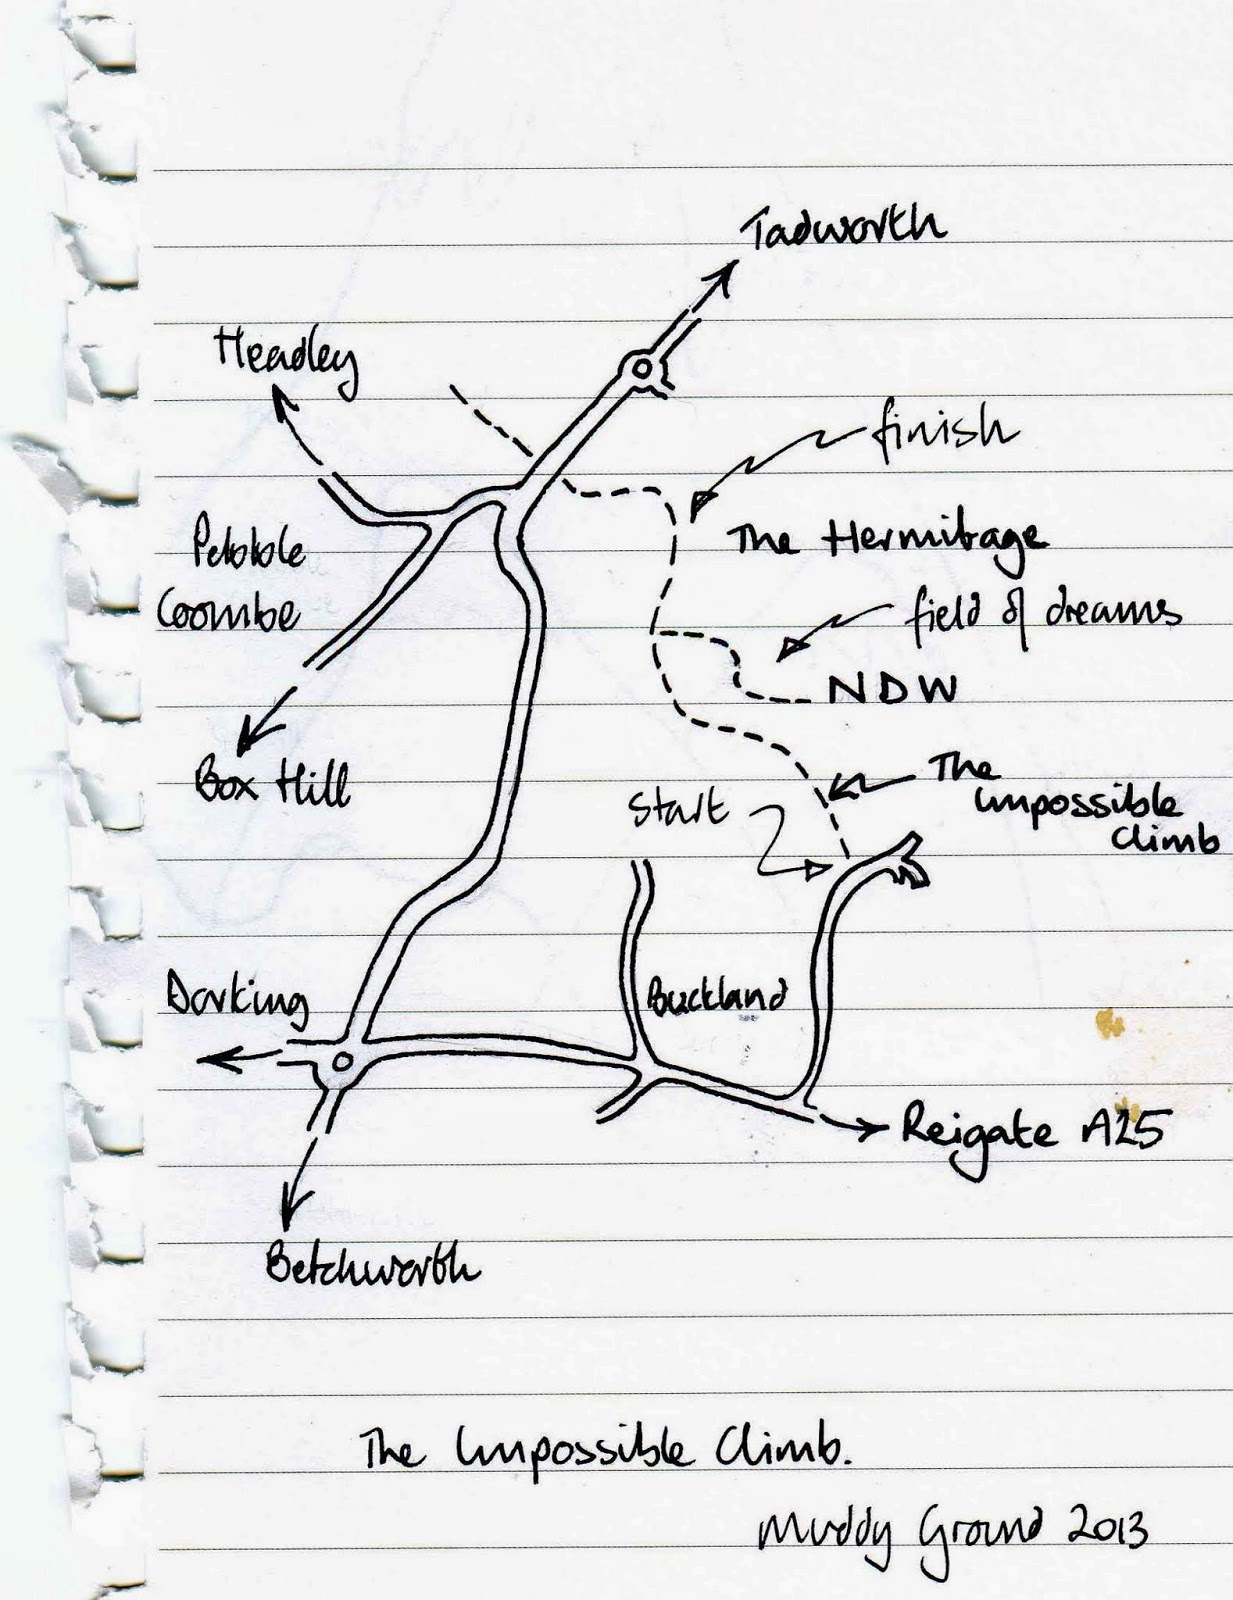 Tadworth
Headley
finish
Pebble
Coombe
The Hermitage
field of dreams
NDW
Box Hill
Start
The
Impossible
Climb
Dorking
Buckland
Reigate A25
Betchworth
The Impossible Climb.
Muddy Ground 2013